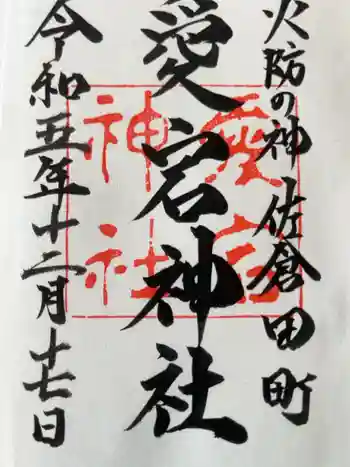 火防の神 佐倉田町
愛宕神社
令和五年十二月十七日
愛宕
神社